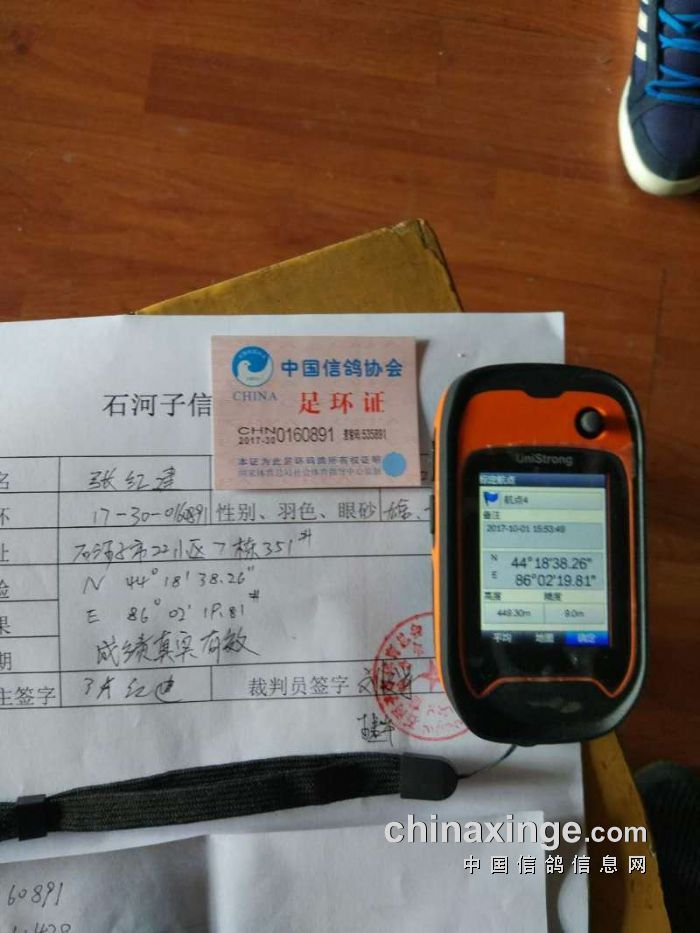 中国信鸽协会
CHINA
足环证
CHN
2017-30 0160891 密码:535891
本证为此足环信鸽所有权证明
石河子信
名 张红建
环 17-30-0160891 性别、羽色、眼砂
址 石河子市22小区7栋351#
N 44°18'38.26"
果 E 86°02'19.81"
期 成绩真实有效
主签字 裁判员签字
UniStrong
航点4
备注
2017-10-01 15:53:49
N 44°18'38.26"
E 86°02'19.81"
高度 精度
449.30m 9.0m
平均 地图 确定
60891
chinaxinge.com
中国信鸽信息网